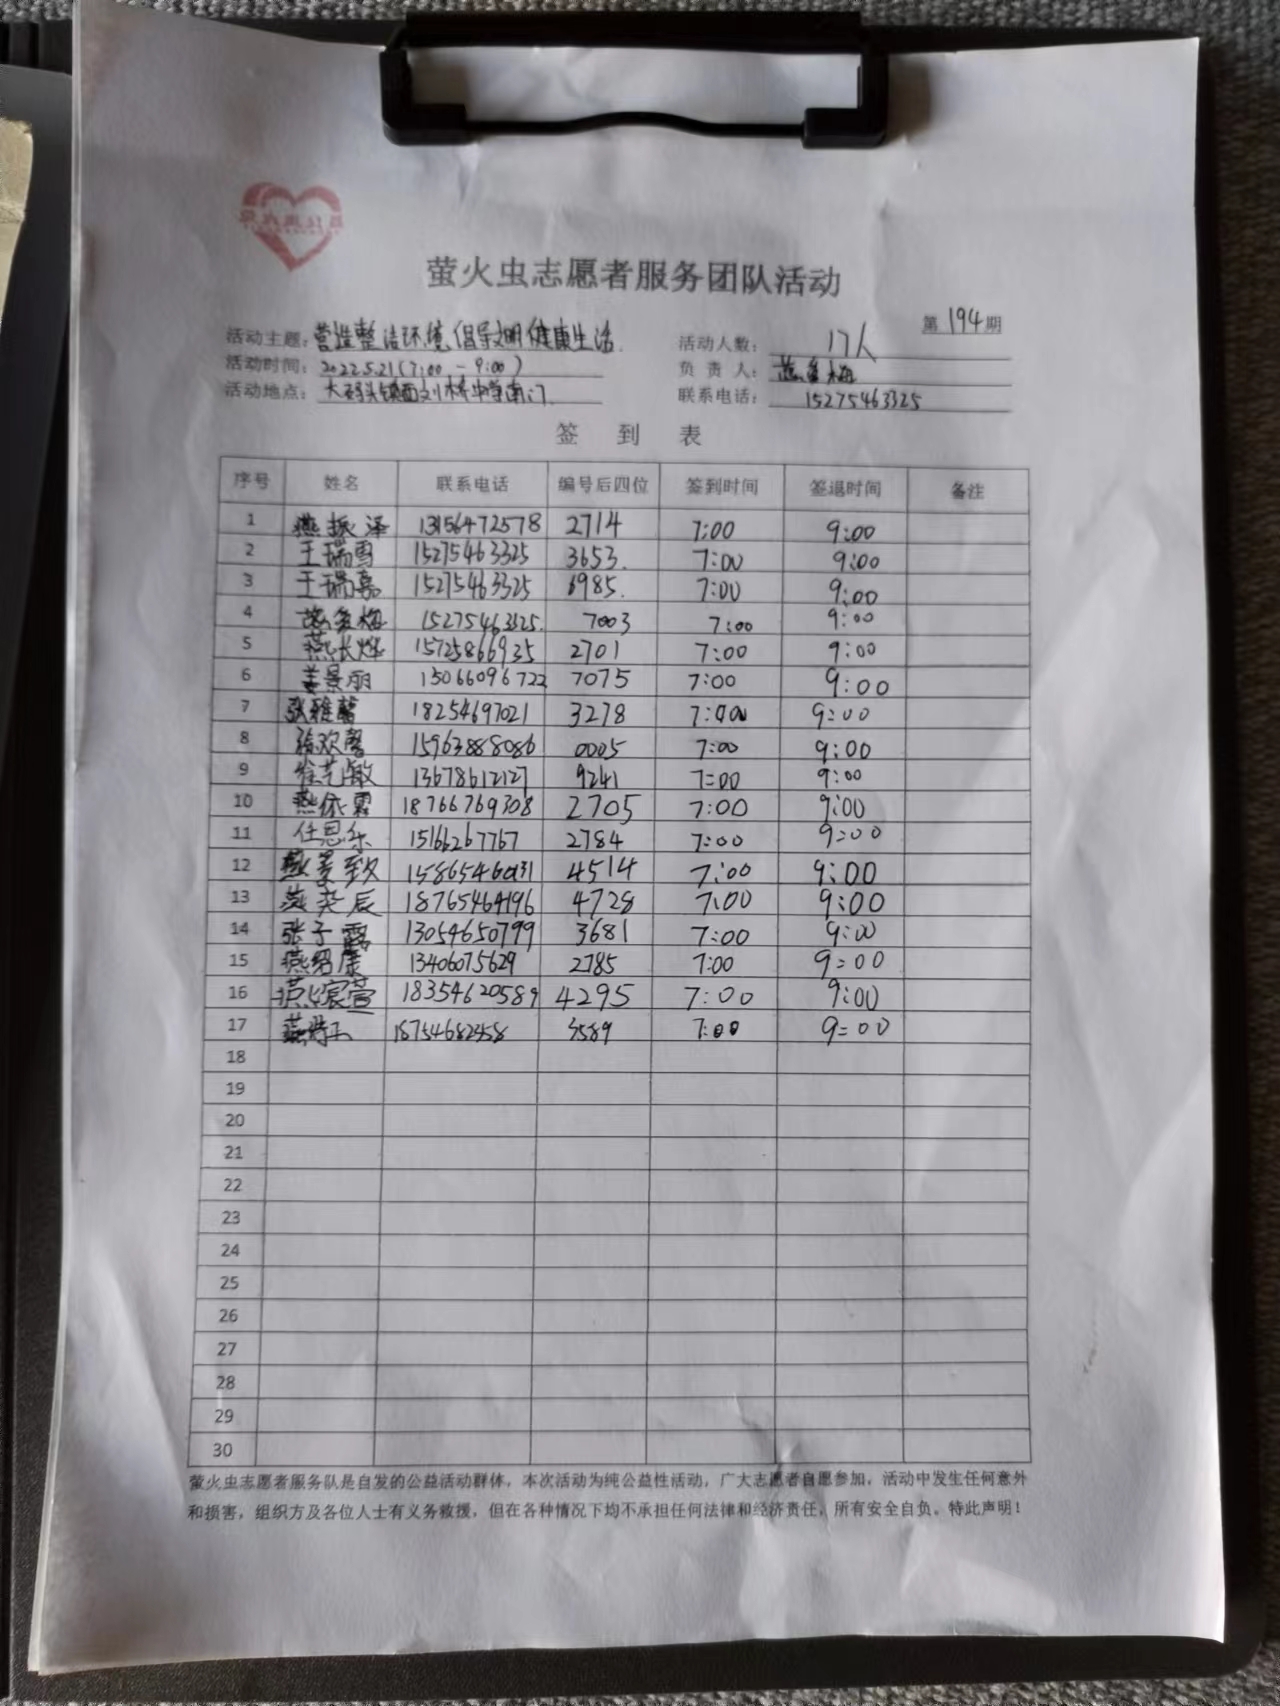 萤火虫志愿者服务团队活动
第194期
活动主题：营造整洁环境,倡导文明健康生活. 活动人数：17人
活动时间：2022.5.21(7:00-9:00) 负责人：
活动地点：大码头镇西刘桥中学南门. 联系电话：15275463325
签到表
序号 姓名 联系电话 编号后四位 签到时间 签退时间 备注
1 燕振泽 13156472578 2714 7:00 9:00
2 王瑞雪 15275463325 3653. 7:00 9:00
3 王瑞嘉 15275463325 6985. 7:00 9:00
4 15275463325. 7003 7:00 9:00
5 燕长烨 15725866935 2701 7:00 9:00
6 姜景丽 15066096722 7075 7:00 9:00
7 张雅馨 18254697021 3278 7:00 9:00
8 15963888086 0005 7:00 9:00
9 徐艺敏 13678612127 9241 7:00 9:00
10 燕依霖 18766769308 2705 7:00 9:00
11 任思乐 15166267767 2784 7:00 9:00
12 15865460131 4514 7:00 9:00
13 燕奕辰 18765464196 4728 7:00 9:00
14 张子露 13054650799 3681 7:00 9:00
15 燕绍康 13406075629 2785 7:00 9:00
16 燕宸萱 18354620589 4295 7:00 9:00
17 18754682458 3589 7:00 9:00
18
19
20
21
22
23
24
25
26
27
28
29
30
萤火虫志愿者服务队是自发的公益活动群体，本次活动为纯公益性活动，广大志愿者自愿参加，活动中发生任何意外
和损害，组织方及各位人士有义务救援，但在各种情况下均不承担任何法律和经济责任，所有安全自负。特此声明！